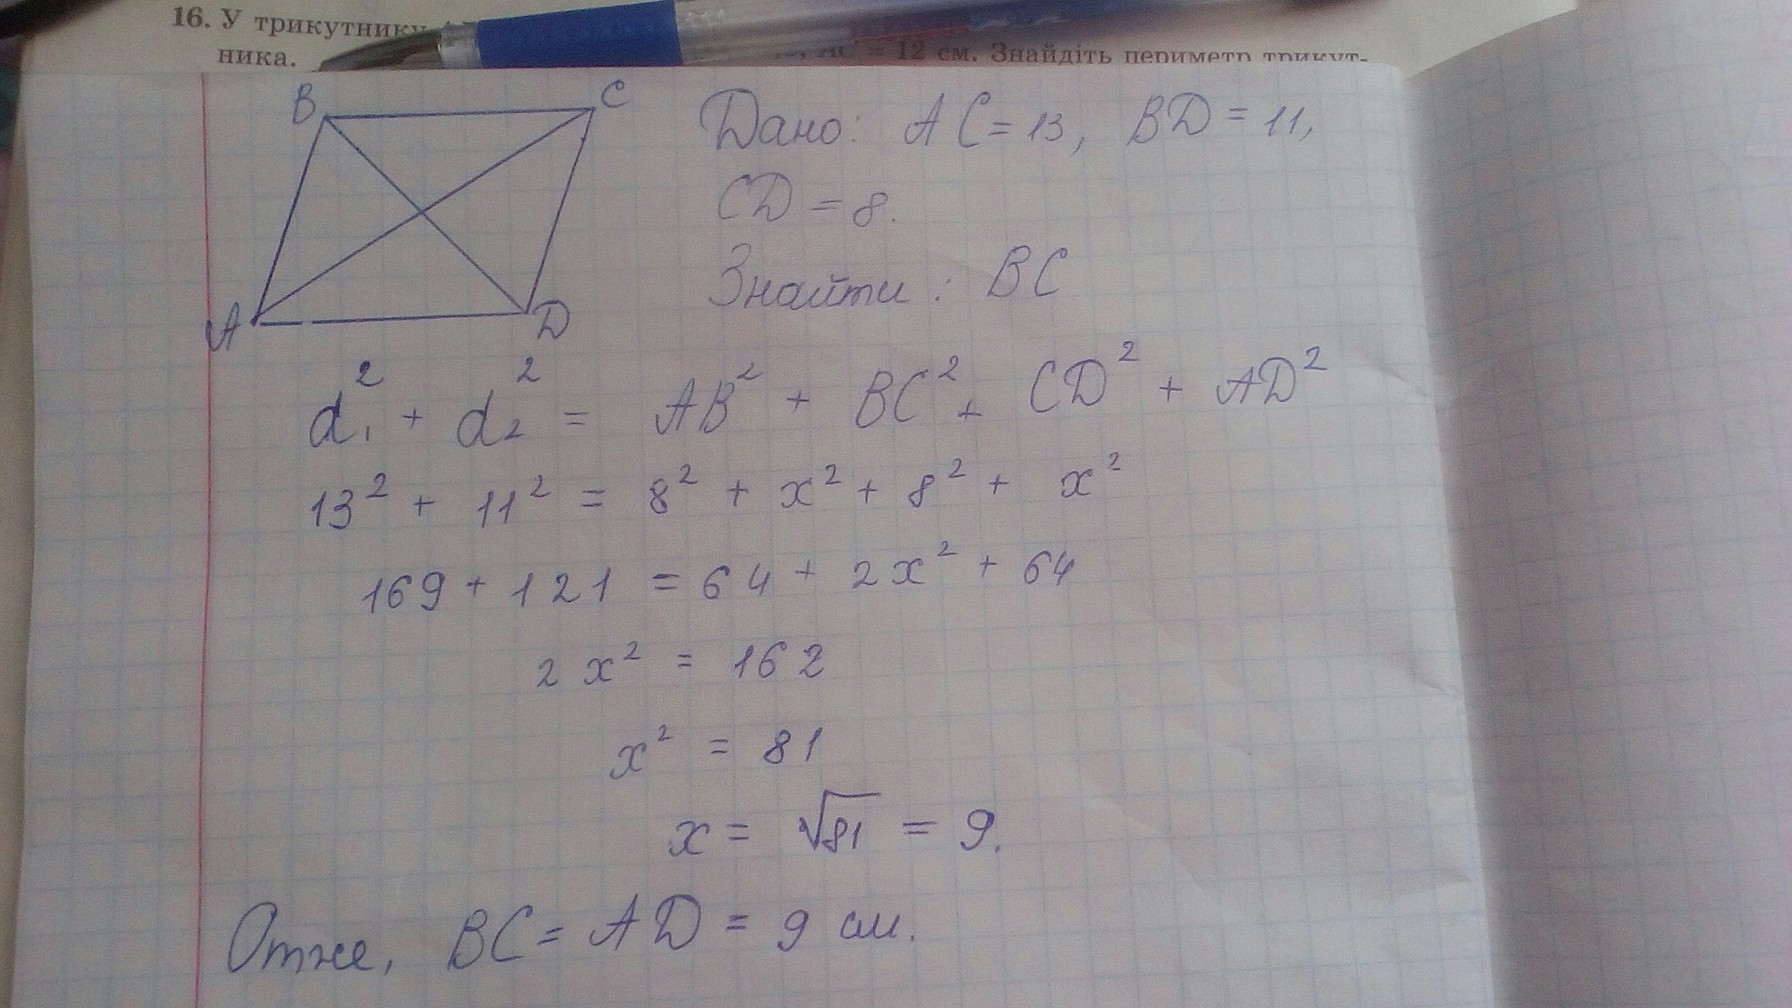 16. У трикутнику
ника. = 12 см. Знайдіть периметр трикут-
B C
A D
Дано: AC = 13, BD = 11,
CD = 8.
Знайти: BC
d₁² + d₂² = AB² + BC² + CD² + AD²
13² + 11² = 8² + x² + 8² + x²
169 + 121 = 64 + 2x² + 64
2x² = 162
x² = 81
x = √81 = 9.
Отже, BC = AD = 9 см.